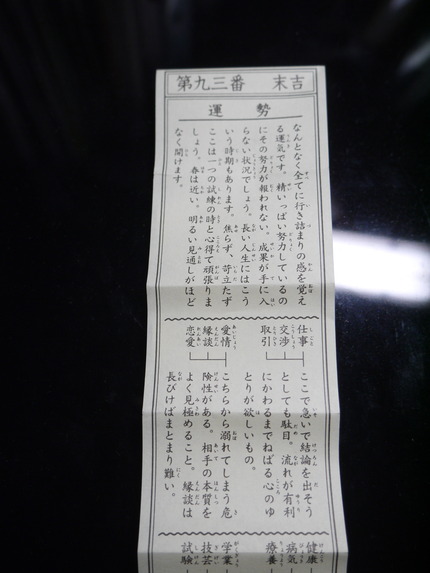 第九三番 末吉
運勢
なんとなく全てに行き詰まりの感を覚え
る運気です。精いっぱい努力しているの
にその努力が報われない。成果が手に入
らない状況でしょう。長い人生にはこう
いう時期もあります。焦らず、苛立たず
ここは一つの試練の時と心得て頑張りま
しょう。春は近い。明るい見通しがほど
なく開けます。
仕事
交渉
取引
ここで急いで結論を出そう
としても駄目。流れが有利
にかわるまでねばる心のゆ
とりが欲しいもの。
愛情
縁談
恋愛
こちらから溺れてしまう危
険性がある。相手の本質を
よく見極めること。縁談は
長びけばまとまり難い。
健康
病気
療養
学業
技芸
試験